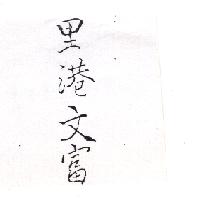 里港文富